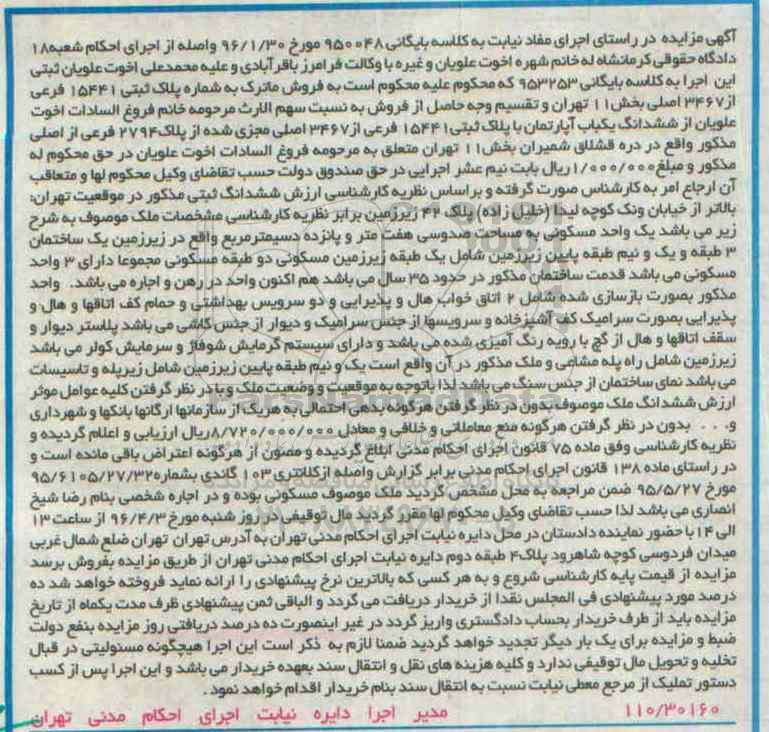 آگهی مزایده در راستای اجرای مفاد نیابت به کلاسه بایگانی ۹۵۰۰۴۸ مورخ ۹۶/۱/۳۰ واصله از اجرای احکام شعبه۱۸
دادگاه حقوقی کرمانشاه له خانم شهره اخوت علویان و غیره با وکالت فرامرز باقرآبادی و علیه محمدعلی اخوت علویان ثبتی
این اجرا به کلاسه بایگانی ۹۵۳۲۵۳ که محکوم علیه محکوم است به فروش ماترک به شماره پلاک ثبتی ۱۵۴۴۱ فرعی
از۳۴۶۷ اصلی بخش۱۱ تهران و تقسیم وجه حاصل از فروش به نسبت سهم الارث مرحومه خانم فروغ السادات اخوت
علویان از ششدانگ یکباب آپارتمان با پلاک ثبتی۱۵۴۴۱ فرعی از۳۴۶۷ اصلی مجزی شده از پلاک۲۷۹۴ فرعی از اصلی
مذکور واقع در دره قشلاق شمیران بخش۱۱ تهران متعلق به مرحومه فروغ السادات اخوت علویان در حق محکوم له
مذکور و مبلغ۱/۰۰۰/۰۰۰ریال بابت نیم عشر اجرایی در حق صندوق دولت حسب تقاضای وکیل محکوم لها و متعاقب
آن ارجاع امر به کارشناس صورت گرفته و براساس نظریه کارشناسی ارزش ششدانگ ثبتی مذکور در موقعیت تهران:
بالاتر از خیابان ونک کوچه لیدا (خلیل زاده) پلاک ۴۲ زیرزمین برابر نظریه کارشناسی مشخصات ملک موصوف به شرح
زیر می باشد یک واحد مسکونی به مساحت صدوسی هفت متر و پانزده دسیمترمربع واقع در زیرزمین یک ساختمان
۳ طبقه و یک و نیم طبقه پایین زیرزمین شامل یک طبقه زیرزمین مسکونی دو طبقه مسکونی مجموعا دارای ۳ واحد
مسکونی می باشد قدمت ساختمان مذکور در حدود ۳۵ سال می باشد هم اکنون واحد در رهن و اجاره می باشد. واحد
مذکور بصورت بازسازی شده شامل ۲ اتاق خواب هال و پذیرایی و دو سرویس بهداشتی و حمام کف اتاقها و هال و
پذیرایی بصورت سرامیک کف آشپزخانه و سرویسها از جنس سرامیک و دیوار از جنس کاشی می باشد پلاستر دیوار و
سقف اتاقها و هال از گچ با رویه رنگ آمیزی شده می باشد و دارای سیستم گرمایش شوفاژ و سرمایش کولر می باشد
زیرزمین شامل راه پله مشاعی و ملک مذکور در آن واقع است یک و نیم طبقه پایین زیرزمین شامل زیرپله و تاسیسات
می باشد نمای ساختمان از جنس سنگ می باشد لذا باتوجه به موقعیت و وضعیت ملک و با در نظر گرفتن کلیه عوامل موثر
ارزش ششدانگ ملک موصوف بدون در نظر گرفتن هرگونه بدهی احتمالی به هریک از سازمانها ارگانها بانکها و شهرداری
و. . . بدون در نظر گرفتن هرگونه منع معاملاتی و خلافی و معادل ۸/۷۲۰/۰۰۰/۰۰۰ریال ارزیابی و اعلام گردیده و
نظریه کارشناسی وفق ماده ۷۵ قانون اجرای احکام مدنی ابلاغ گردیده و مصون از هرگونه اعتراض باقی مانده است و
در راستای ماده ۱۳۸ قانون اجرای احکام مدنی برابر گزارش واصله ازکلانتری ۱۰۳ گاندی بشماره۹۵/۶۱۰۵/۲۷/۳۲
مورخ ۹۵/۵/۲۷ ضمن مراجعه به محل مشخص گردید ملک موصوف مسکونی بوده و در اجاره شخصی بنام رضا شیخ
انصاری می باشد لذا حسب تقاضای وکیل محکوم لها مقرر گردید مال توقیفی در روز شنبه مورخ ۹۶/۴/۳ از ساعت ۱۳
الی ۱۴ با حضور نماینده دادستان در محل دایره نیابت اجرای احکام مدنی تهران به آدرس تهران تهران ضلع شمال غربی
میدان فردوسی کوچه شاهرود پلاک۴ طبقه دوم دایره نیابت اجرای احکام مدنی تهران از طریق مزایده بفروش برسد
مزایده از قیمت پایه کارشناسی شروع و به هر کسی که بالاترین نرخ پیشنهادی را ارائه نماید فروخته خواهد شد ده
درصد مورد پیشنهادی فی المجلس نقدا از خریدار دریافت می گردد و الباقی ثمن پیشنهادی ظرف مدت یکماه از تاریخ
مزایده باید از طرف خریدار بحساب دادگستری واریز گردد در غیر اینصورت ده درصد دریافتی روز مزایده بنفع دولت
ضبط و مزایده برای یک بار دیگر تجدید خواهد گردید ضمنا لازم به ذکر است این اجرا هیچگونه مسئولیتی در قبال
تخلیه و تحویل مال توقیفی ندارد و کلیه هزینه های نقل و انتقال سند بعهده خریدار می باشد و این اجرا پس از کسب
دستور تملیک از مرجع معطی نیابت نسبت به انتقال سند بنام خریدار اقدام خواهد نمود.
۱۱۰/۳۰۱۶۰ مدیر اجرا دایره نیابت اجرای احکام مدنی تهران